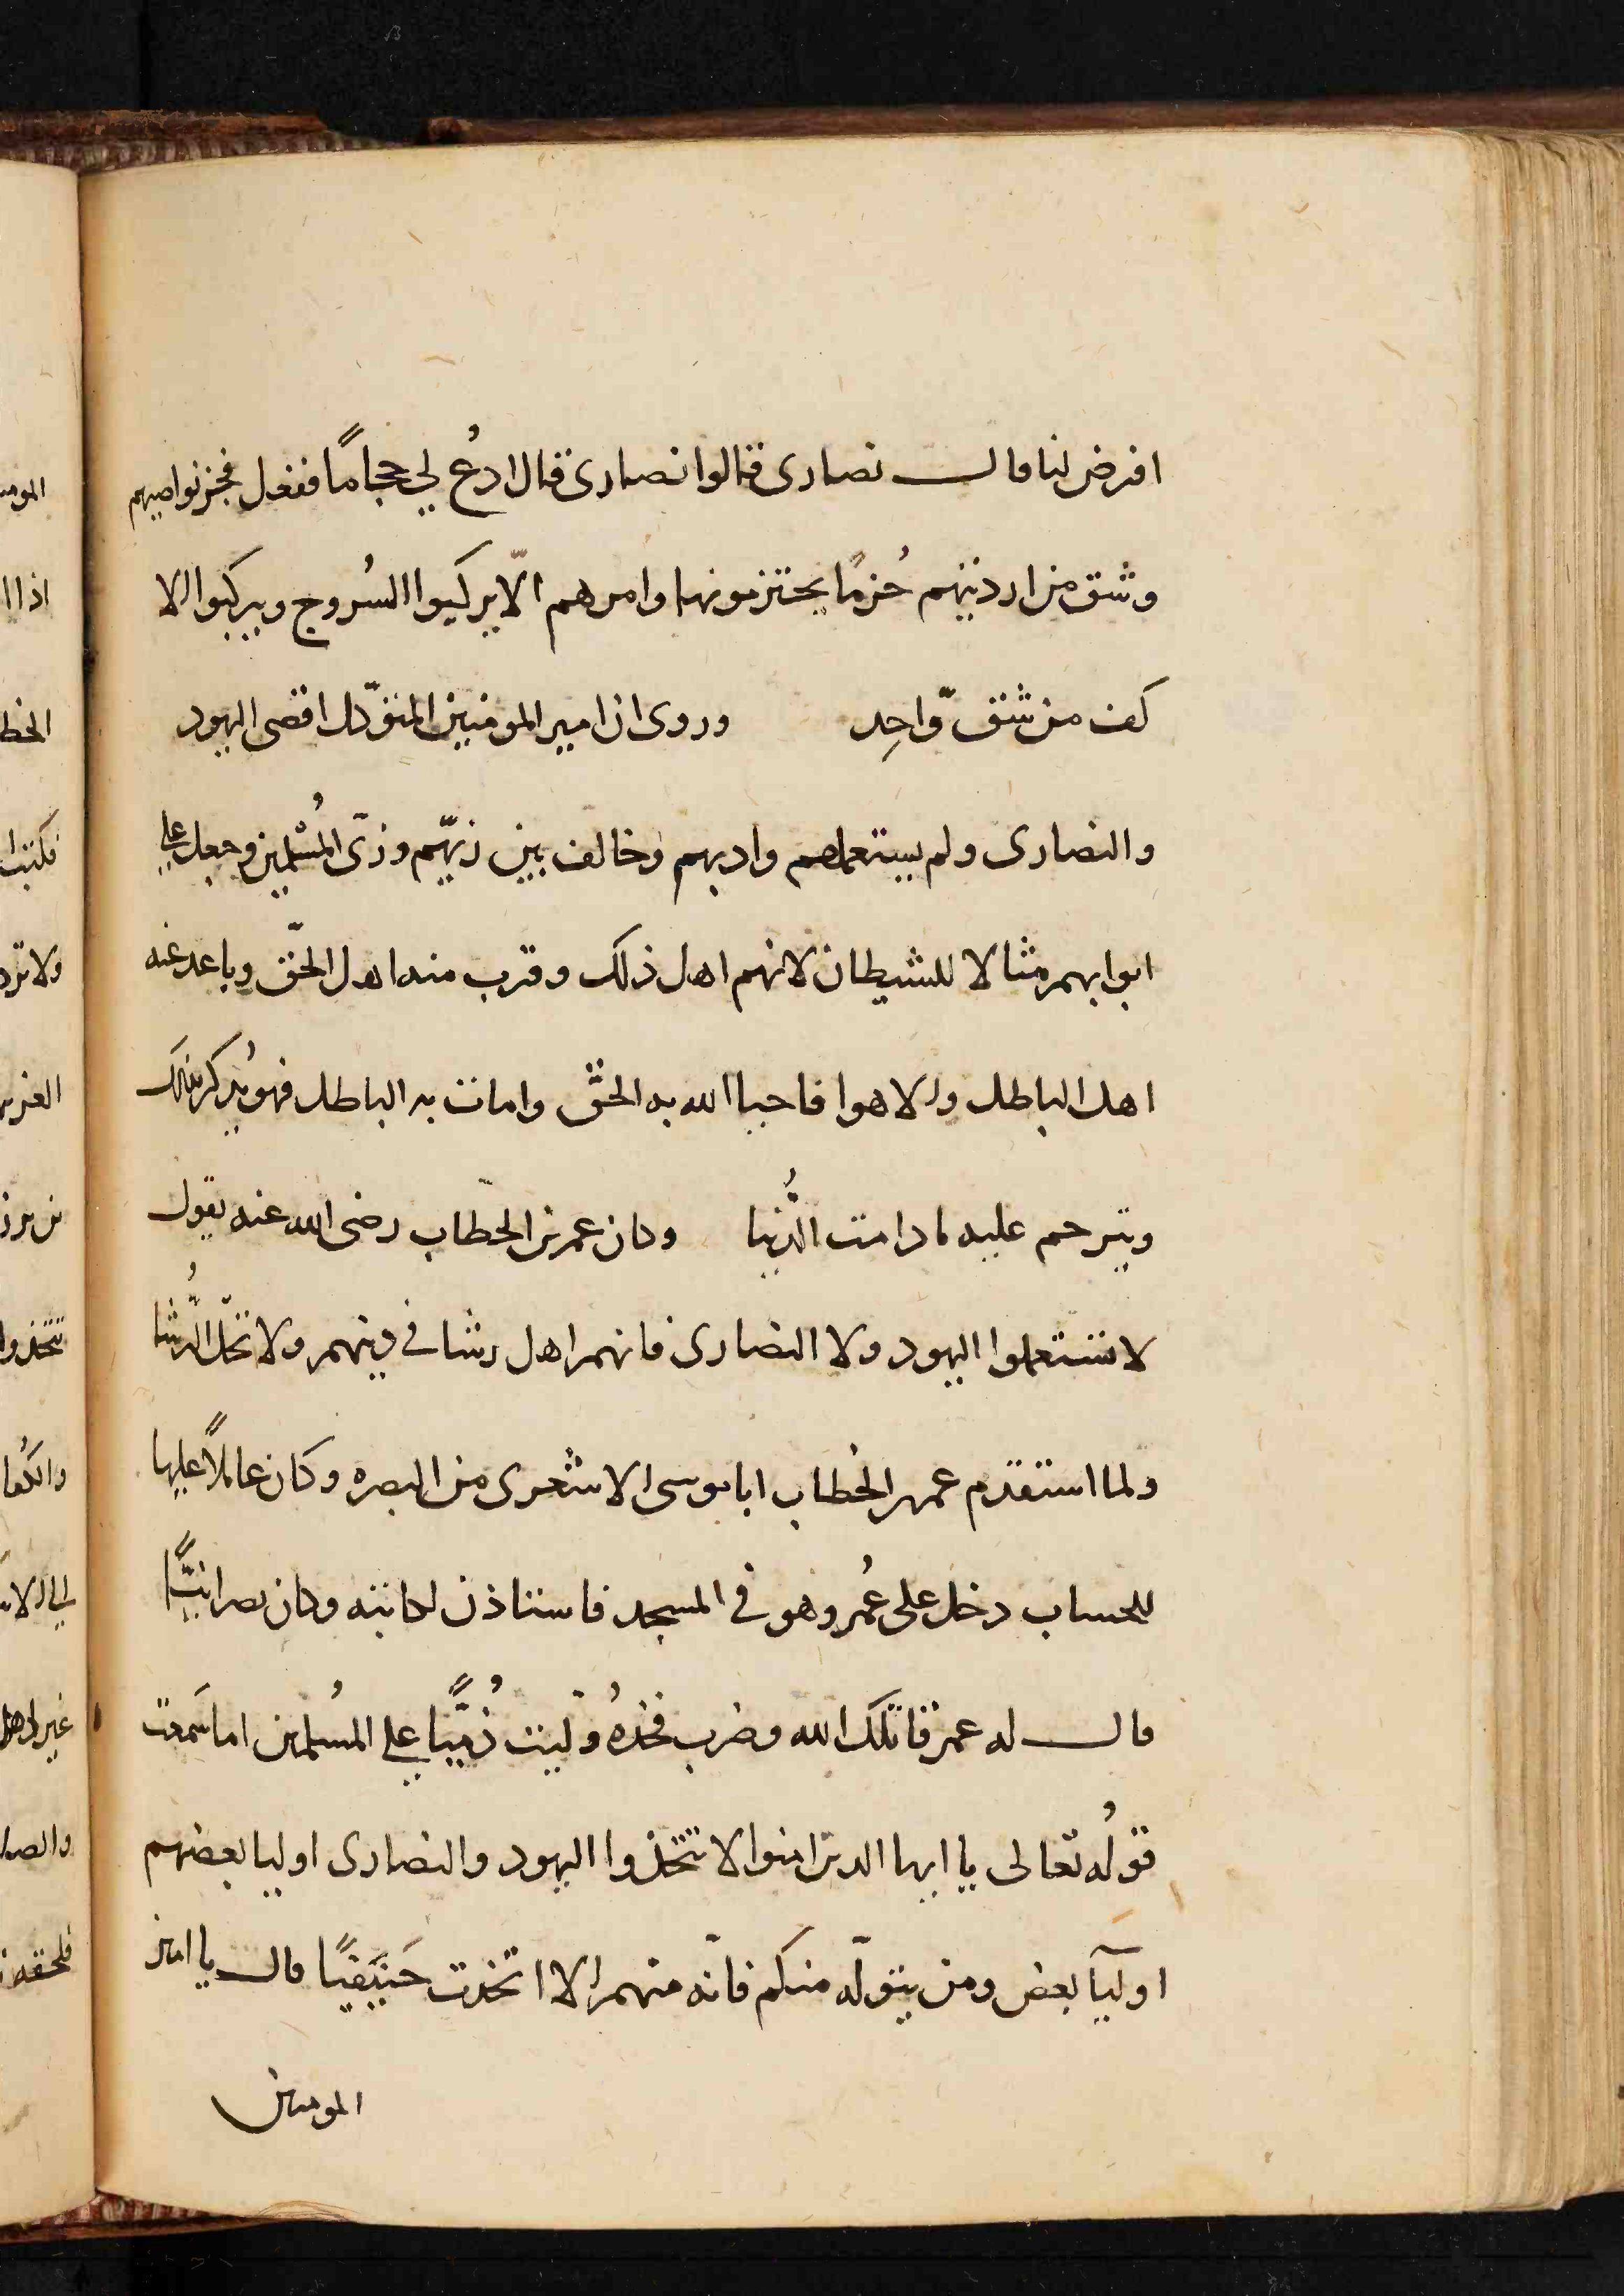 افرض لنا قال نصارى قالوا نصارى قال ادعُ لي حجاماً ففعل فجز نواصيهم
وشق من ارديتهم حُزمًا يحتزمونها وامرهم الّا يركبوا السُروج ويركبوا الا
كف من شق وّاحِد وروى ان امير المومنين المتوكّل اقصى اليهود
والنصارى ولم يستعملهم واديهم وخالف بين زيّهم وزىّ المُسْلمين وجعل على
ابوابهم مثالا للشيطان لانهم اهل ذلك وقرب منه اهل الحّق وباعد عنه
اهل الباطل والاهوا فاحيا الله به الحقّ وامات به الباطل فهو يُذكر بذلك
ويترحم عليه ما دامت الدُّنيا وكان عمر بن الخطّاب رضى الله عنه يقول
لا تستعملوا اليهود ولا النصارى فانهم اهل رشا في دينهم ولا تحلّ الرُّشا
ولما استقدم عمر بن الخطاب ابا موسى الاشعرى من البصره وكان عاملاً عليها
للحساب دخل على عُمر وهو في المسجد فاستاذن لكاتبه وكان نصرانيًّا
قال له عمر قاتلك الله وضرب فخذهُ ولّيت ذُمّيًّا على المُسلمين اما سَمعت
قولُه تعالى يا ايها الذين امنوا لا تتخذوا اليهود والنصارى اوليا بعضهم
اوليآ بعض ومن يتولّه منكم فانّه منهم الا اتخذت حَنيَفيًا قال يا امير
المومنين